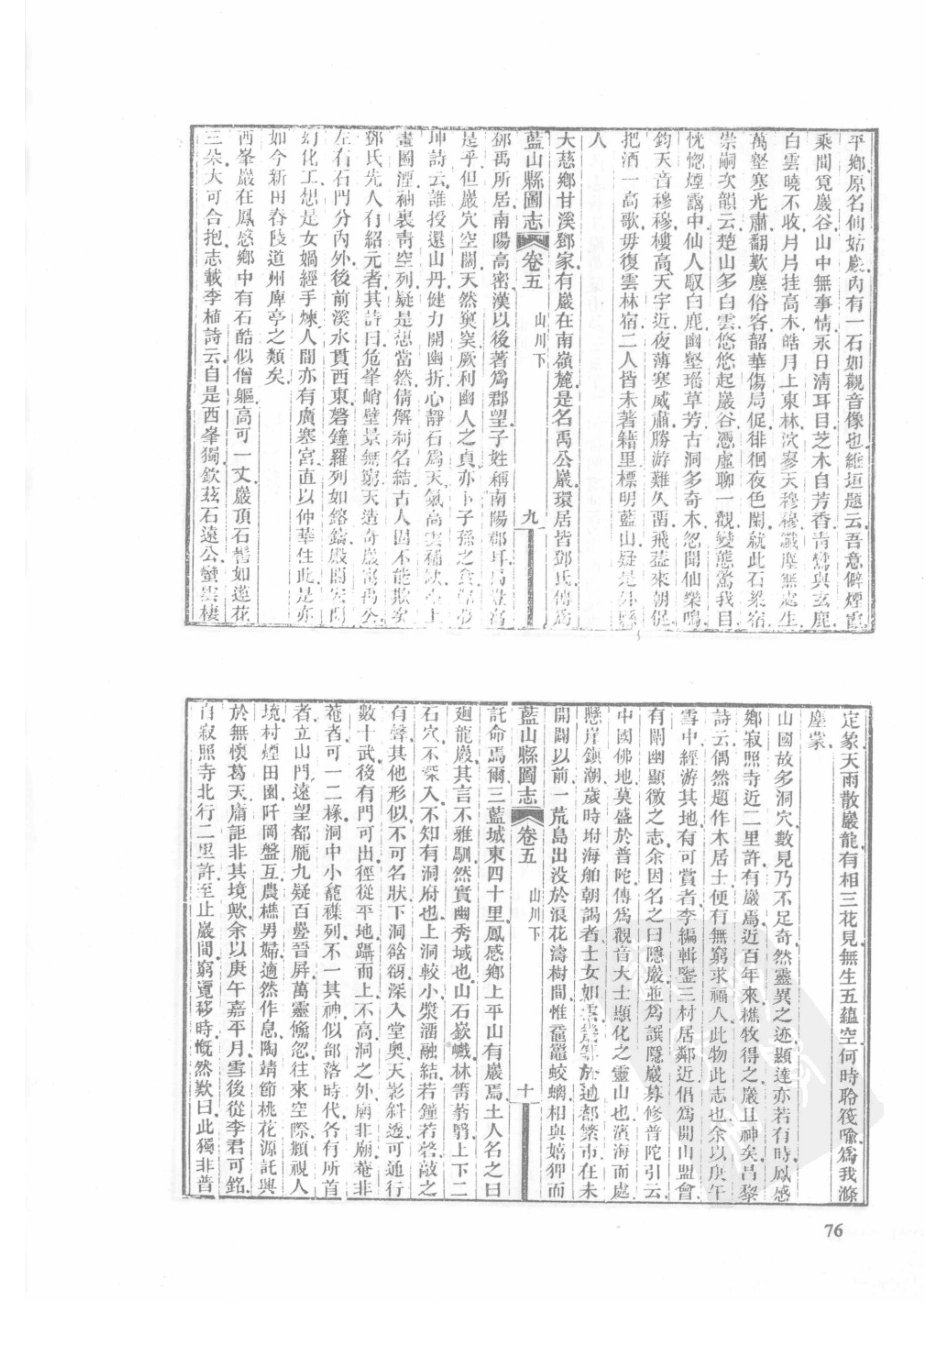 平鄉原名仙姑巖內有一石如觀音像也維垣題云吾意僻煙霞
乘閒覓巖谷山中無事情永日淸耳目芝木自芳香靑鸞與玄鹿
白雲曉不收片片挂高木皓月上東林泬寥天穆穆讖塵無處生
萬壑寒光肅翻歎塵俗客韶華傷局促徘徊夜色闌就此石梁宿
崇嗣次韻云楚山多白雲悠悠起巖谷憑虛聊一觀變態驚我目
恍惚煙靄中仙人馭白鹿幽壑瑶草芳古洞多奇木忽聞仙樂鳴
鈞天音穆穆樓高天宇近夜薄寒威肅勝游難久畱飛蓋來朝促
把酒一高歌毋復雲林宿二人皆未著籍里標明藍山疑是
人
大慈鄉甘溪鄧家有巖在南嶺麓是名禹公巖環居皆鄧氏傳爲
藍山縣圖志 卷五 山川下 九
鄧禹所居南陽高密漢以後著爲郡望子姓稱南陽郡耳
是乎但巖穴空闊天然窔突厥利幽人之貞亦卜子孫之
坤詩云誰投還山丹健力開幽折心靜石爲天氣高雲補
畫圖湮袖裏靑空列疑是想當然倩解刱名結古人因不能欺
鄧氏先人有紹元者其詩曰危峯峭壁景無窮天造奇巖寓禹公
左右石門分內外後前溪水貫西東磬鐘羅列如鎔鑄
幻化工想是女媧經手煉人間亦有廣寒宮直以仲華住此是亦
如今新田舂陵道州庳亭之類矣
西峯巖在鳳感鄉中有石酷似僧軀高可一丈巖頂石髻如蓮花
三朵大可合抱志載李植詩云自是西峯獨欽玆石遠公蠻雲棲
定象天雨散巖龍有相三花見無生五蘊空何時聆筏喩爲我滌
塵蒙
山國故多洞穴數見乃不足奇然靈異之迹顯達亦若有時鳳感
鄉寂照寺近二里許有巖焉近百年來樵牧得之巖且神矣昌黎
詩云偶然題作木居士便有無窮求福人此物此志也余以庚午
雪中經游其地有可賞者李編輯鑒三村居鄰近倡爲開山盟會
有闡幽顯微之志余因名之曰隱巖並爲譔隱巖募修普陀引云
中國佛地莫盛於普陀傳爲觀音大士顯化之靈山也濱海而處
懸岸鎭潮歲時坿海舶朝謁者士女如雲幾等於通都繁市在未
開闢以前一荒島出没於浪花濤樹間惟黿鼉蛟螭相與嬉狎而
藍山縣圖志 卷五 山川下 十
託命焉爾三藍城東四十里鳳感鄉上平山有巖焉土人名之曰
廻龍巖其言不雅馴然實幽秀域也山石嶔巇林箐蓊翳上下二
石穴不深入不知有洞府也上洞較小漿涵融結若鐘若磬敲之
有聲其他形似不可名狀下洞谽谺深入堂奧天影斜透可通行
數十武後有門可出徑從平地躡而上不高洞之外廟非廟菴非
菴者可一二椽洞中小龕襍列不一其神似部落時代各有所首
者立山門遠望都龐九疑百疊晉屏萬靈儵忽往來空際頫視人
境村煙田園阡岡盤互農樵男婦適然作息陶靖節桃花源託興
於無懷葛天庸詎非其境歟余以庚午嘉平月雪後從李君可銘
自寂照寺北行二里許至止巖間窮覽移時慨然歎曰此獨非普
76